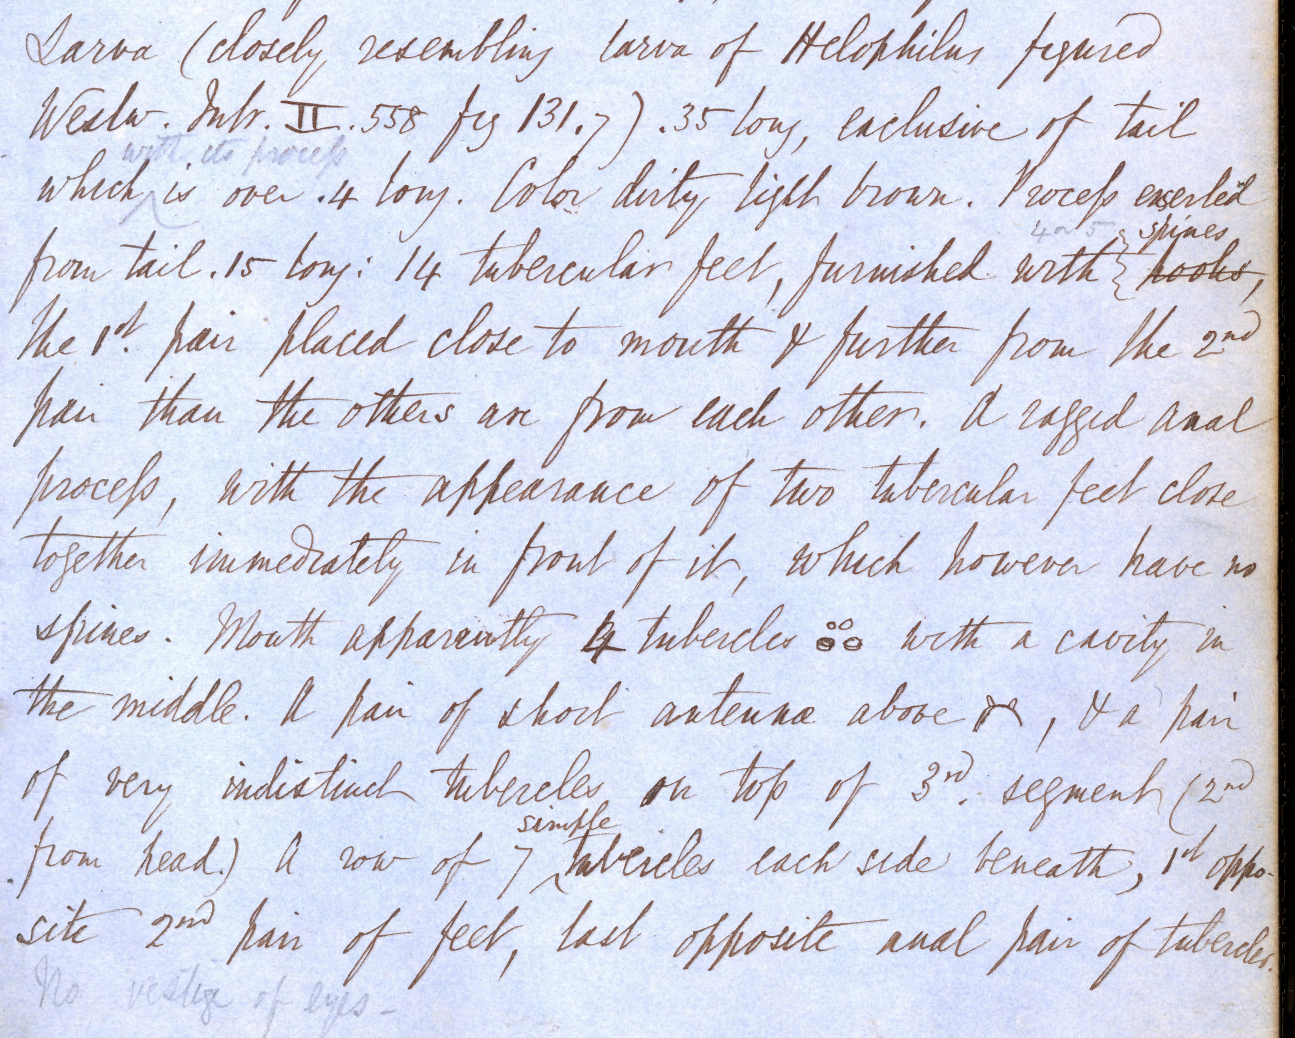 Larva (closely resembling larva of Helophilus figured
Westw. Intr. II. 558 fig 131.7) .35 long, exclusive of tail
with its process
which is over .4 long. Color dirty light brown. Process exserted
4 or 5 spines
from tail .15 long: 14 tubercular feet, furnished with hooks,
the 1st. pair placed close to mouth & further from the 2nd
pair than the others are from each other. A ragged anal
process, with the appearance of two tubercular feet close
together immediately in front of it, which however have no
spines. Mouth apparently 4 tubercles with a cavity in
the middle. A pair of short antennæ above, & a pair
of very indistinct tubercles on top of 3rd. segment (2nd
simple
from head.) A row of 7 tubercles each side beneath, 1st oppo-
site 2nd pair of feet, last opposite anal pair of tubercles.
No vestige of eyes -